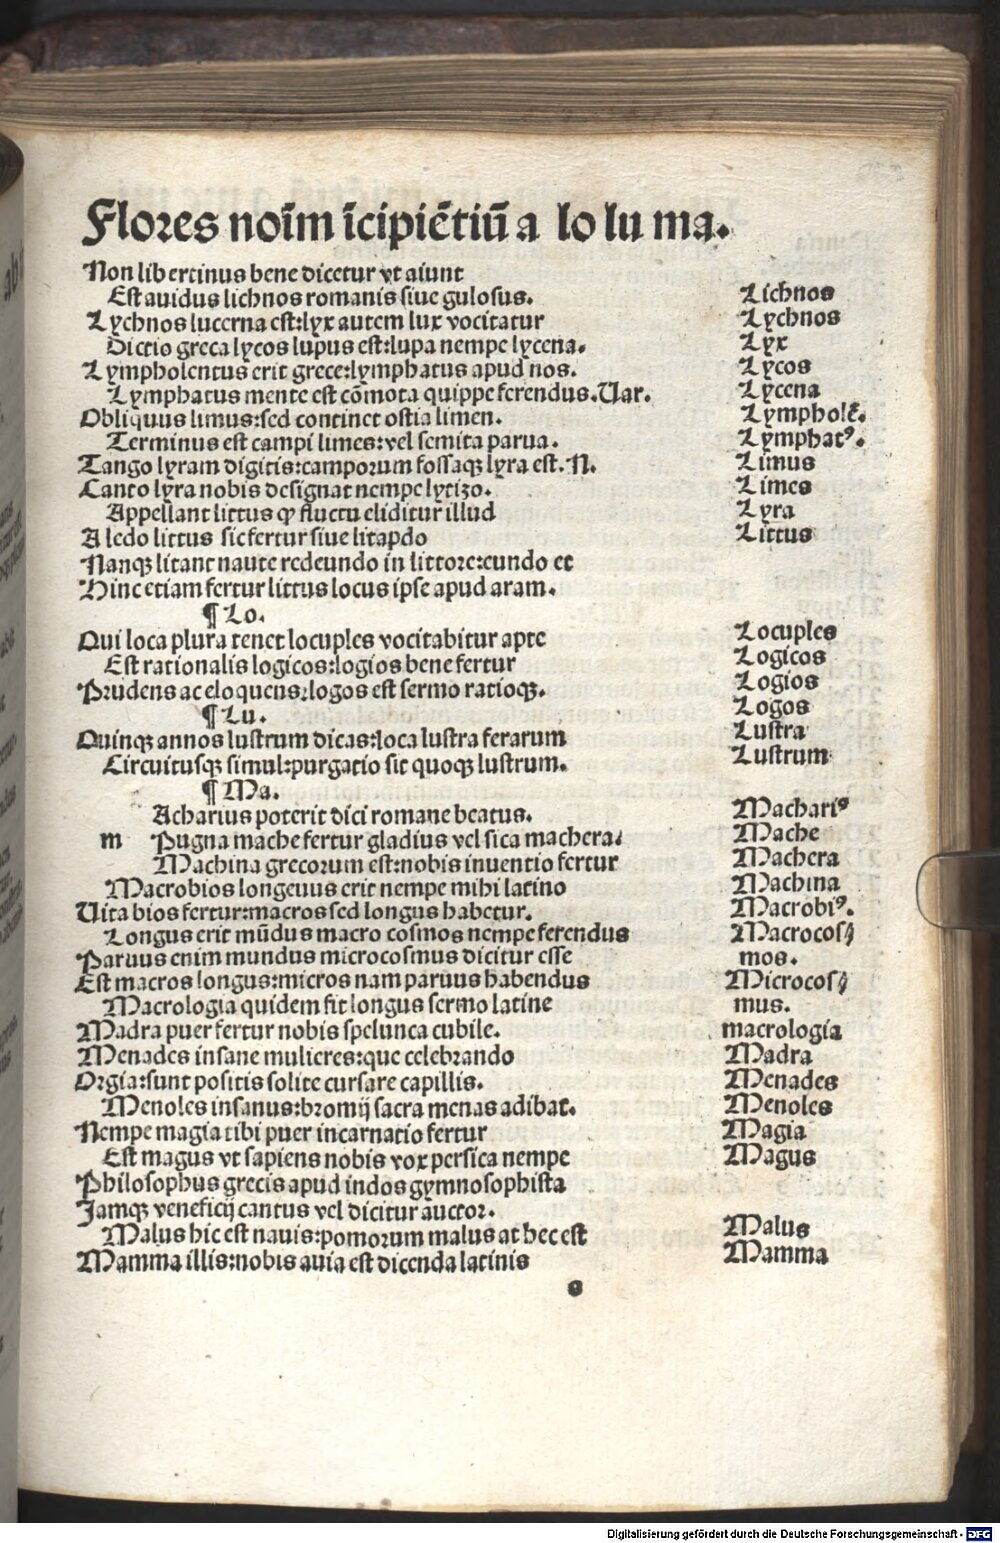 Flores noĩm ĩcipiẽtiũ a lo lu ma.
Non libertinus bene dicetur vt aiunt
Est auidus lichnos romanis siue gulosus.
Lychnos lucerna est:lyx autem lux vocitatur
Dictio greca lycos lupus est:lupa nempe lycena.
Lympholentus erit grece:lymphatus apud nos.
Lymphatus mente est cõmota quippe ferendus.Uar.
Obliquus limus:sed continet ostia limen.
Terminus est campi limes:vel semita parua.
Tango lyram digitis:camporum fossaqꝫ lyra est.N.
Canto lyra nobis designat nempe lytizo.
Appellant littus ꝙ fluctu eliditur illud
A ledo littus sic fertur siue litapdo
Nanqꝫ litant naute redeundo in littore:eundo et
Hinc etiam fertur littus locus ipse apud aram.
¶ Lo.
Qui loca plura tenet locuples vocitabitur apte
Est rationalis logicos:logios bene fertur
Prudens ac eloquens:logos est sermo ratioqꝫ.
¶ Lu.
Quinqꝫ annos lustrum dicas:loca lustra ferarum
Circuitusqꝫ simul:purgatio sit quoqꝫ lustrum.
¶ Ma.
Acharius poterit dici romane beatus.
m Pugna mache fertur gladius vel sica machera:
Machina grecorum est:nobis inuentio fertur
Macrobios longeuus erit nempe mihi latino
Uita bios fertur:macros sed longus habetur.
Longus erit mũdus macro cosmos nempe ferendus
Paruus enim mundus microcosmus dicitur esse
Est macros longus:micros nam paruus habendus
Macrologia quidem fit longus sermo latine
Madra puer fertur nobis spelunca cubile.
Menades insane mulieres:que celebrando
Orgia:sunt positis solite cursare capillis.
Menoles insanus:bromij sacra menas adibat.
Nempe magia tibi puer incarnatio fertur
Est magus vt sapiens nobis vox persica nempe
Philosophus grecis apud indos gymnosophista
Jamqꝫ veneficij cantus vel dicitur auctor.
Malus hic est nauis:pomorum malus at hec est
Mamma illis:nobis auia est dicenda latinis
Lichnos
Lychnos
Lyx
Lycos
Lycena
Lympholẽ.
Lymphatꝰ.
Limus
Limes
Lyra
Littus
Locuples
Logicos
Logios
Logos
Lustra
Lustrum
Machariꝰ
Mache
Machera
Machina
Macrobiꝰ.
Macrocos//
mos.
Microcos//
mus.
macrologia
Madra
Menades
Menoles
Magia
Magus
Malus
Mamma
Digitalisierung gefördert durch die Deutsche Forschungsgemeinschaft - DFG